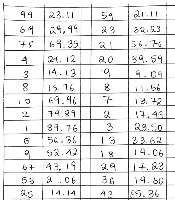 99 23.11 59 21.11
69 29,99 23 32.23
78 69.35 21 36.76
4 24.12 20 39.59
3 14.13 9 9.09
8 15.76 8 11.56
10 69.96 7 13.72
2 79.89 2 17.45
1 89.76 3 23.50
6 56.36 13 33.62
9 52.42 18 19.06
67 43.15 29 17.23
53 2.06 36 19.50
25 14.14 42 65.36